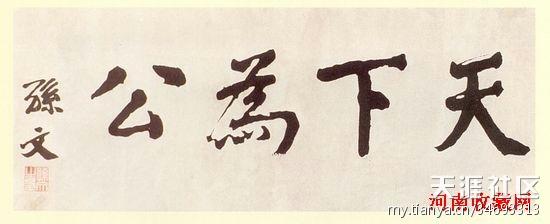 天下為公
孫文
天涯社区
my.tianya.cn/34099313
河南收藏网